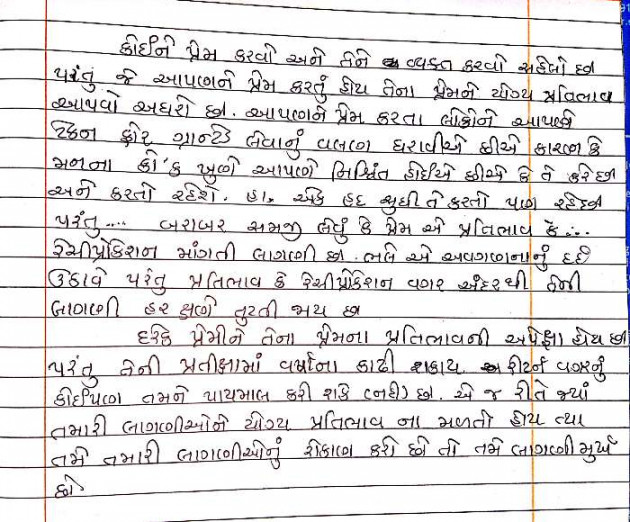 કોઈને પ્રેમ કરવો અને તેને વ્યક્ત કરવો સહેલો છે
પરંતુ જે આપણને પ્રેમ કરતું હોય તેના પ્રેમને યોગ્ય પ્રતિભાવ
આપવો અઘરો છે. આપણને પ્રેમ કરતા લોકોને આપણે
ટેકન ફોર ગ્રાન્ટેડ લેવાનું વલણ ધરાવીએ છીએ કારણ કે
મનના કો'ક ખુણે આપણે નિશ્ચિંત હોઈએ છીએ કે તે કરે છે
અને કરતો રહેશે. હા, એક હદ સુધી તે કરતો પણ રહેછે
પરંતુ.... બરાબર સમજી લેવું કે પ્રેમ એ પ્રતિભાવ કે...
રેસીપ્રોકેશન માંગતી લાગણી છે. ભલે એ અવગણનાનું દર્દ
ઉઠાવે પરંતુ પ્રતિભાવ કે રેસીપ્રોકેશન વગર અંદરથી તેની
લાગણી હર ક્ષણે તુટતી જાય છે
દરેક પ્રેમીને તેના પ્રેમના પ્રતિભાવની અપેક્ષા હોય છે
પરંતુ તેની પ્રતીક્ષામાં વર્ષોના કાઢી શકાય. રીટર્ન વગરનું
કોઈપણ તમને પાયમાલ કરી શકે (નહી) છે. એ જ રીતે જ્યાં
તમારી લાગણીઓને યોગ્ય પ્રતિભાવ ના મળતો હોય ત્યા
તમે તમારી લાગણીઓનું રોકાણ કરો છો તો તમે લાગણીમુર્ખ
છો.